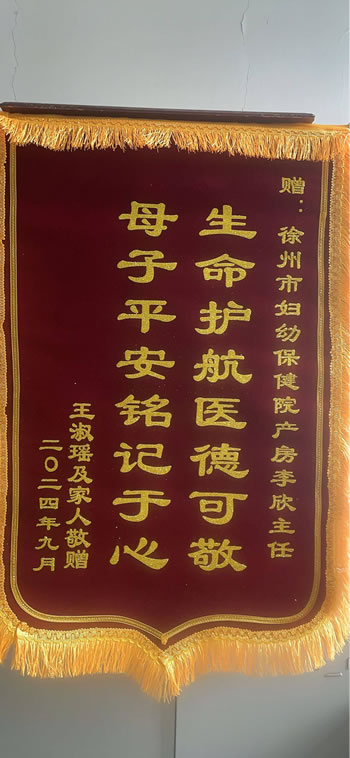 赠：徐州市妇幼保健院产房李欣主任
生命护航医德可敬
母子平安铭记于心
王淑瑶及家人敬赠
二〇二四年九月